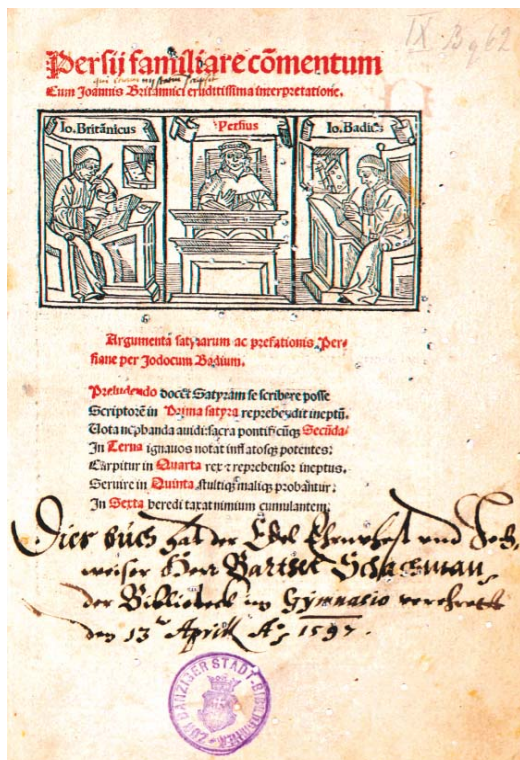 IX B q 62
Persij familiare cõmentum
Cum Joannis Britannici eruditissima interpretatione.
Io. Britãnicus
Persius
Io. Badiꝰ
Argumenta satyrarum ac prefationis Per-
siane per Jodocum Badium.
Preludendo docet Satyram se scribere posse
Scriptorẽ in Prima satyra reprehendit ineptũ.
Uota nephanda auidi: sacra pontificũqȝ Secũda/
In Terna ignauos notat inflatosqȝ potentes:
Carpitur in Quarta rex ⁊ reprehensor ineptus.
Seruire in Quinta stultiqȝ maliqȝ probãntur:
In Sexta heredi taxat nimium cumulantem:
Dies buch hat der Edel Ehrnvhest und Hoch
weiser Herr Bartsel Schachman
der Bibliotheck im Gymnasio verehrett
den 13 Aprill Aº 1597.
ZUR DANZIGER STADT-BIBLIOTHEK